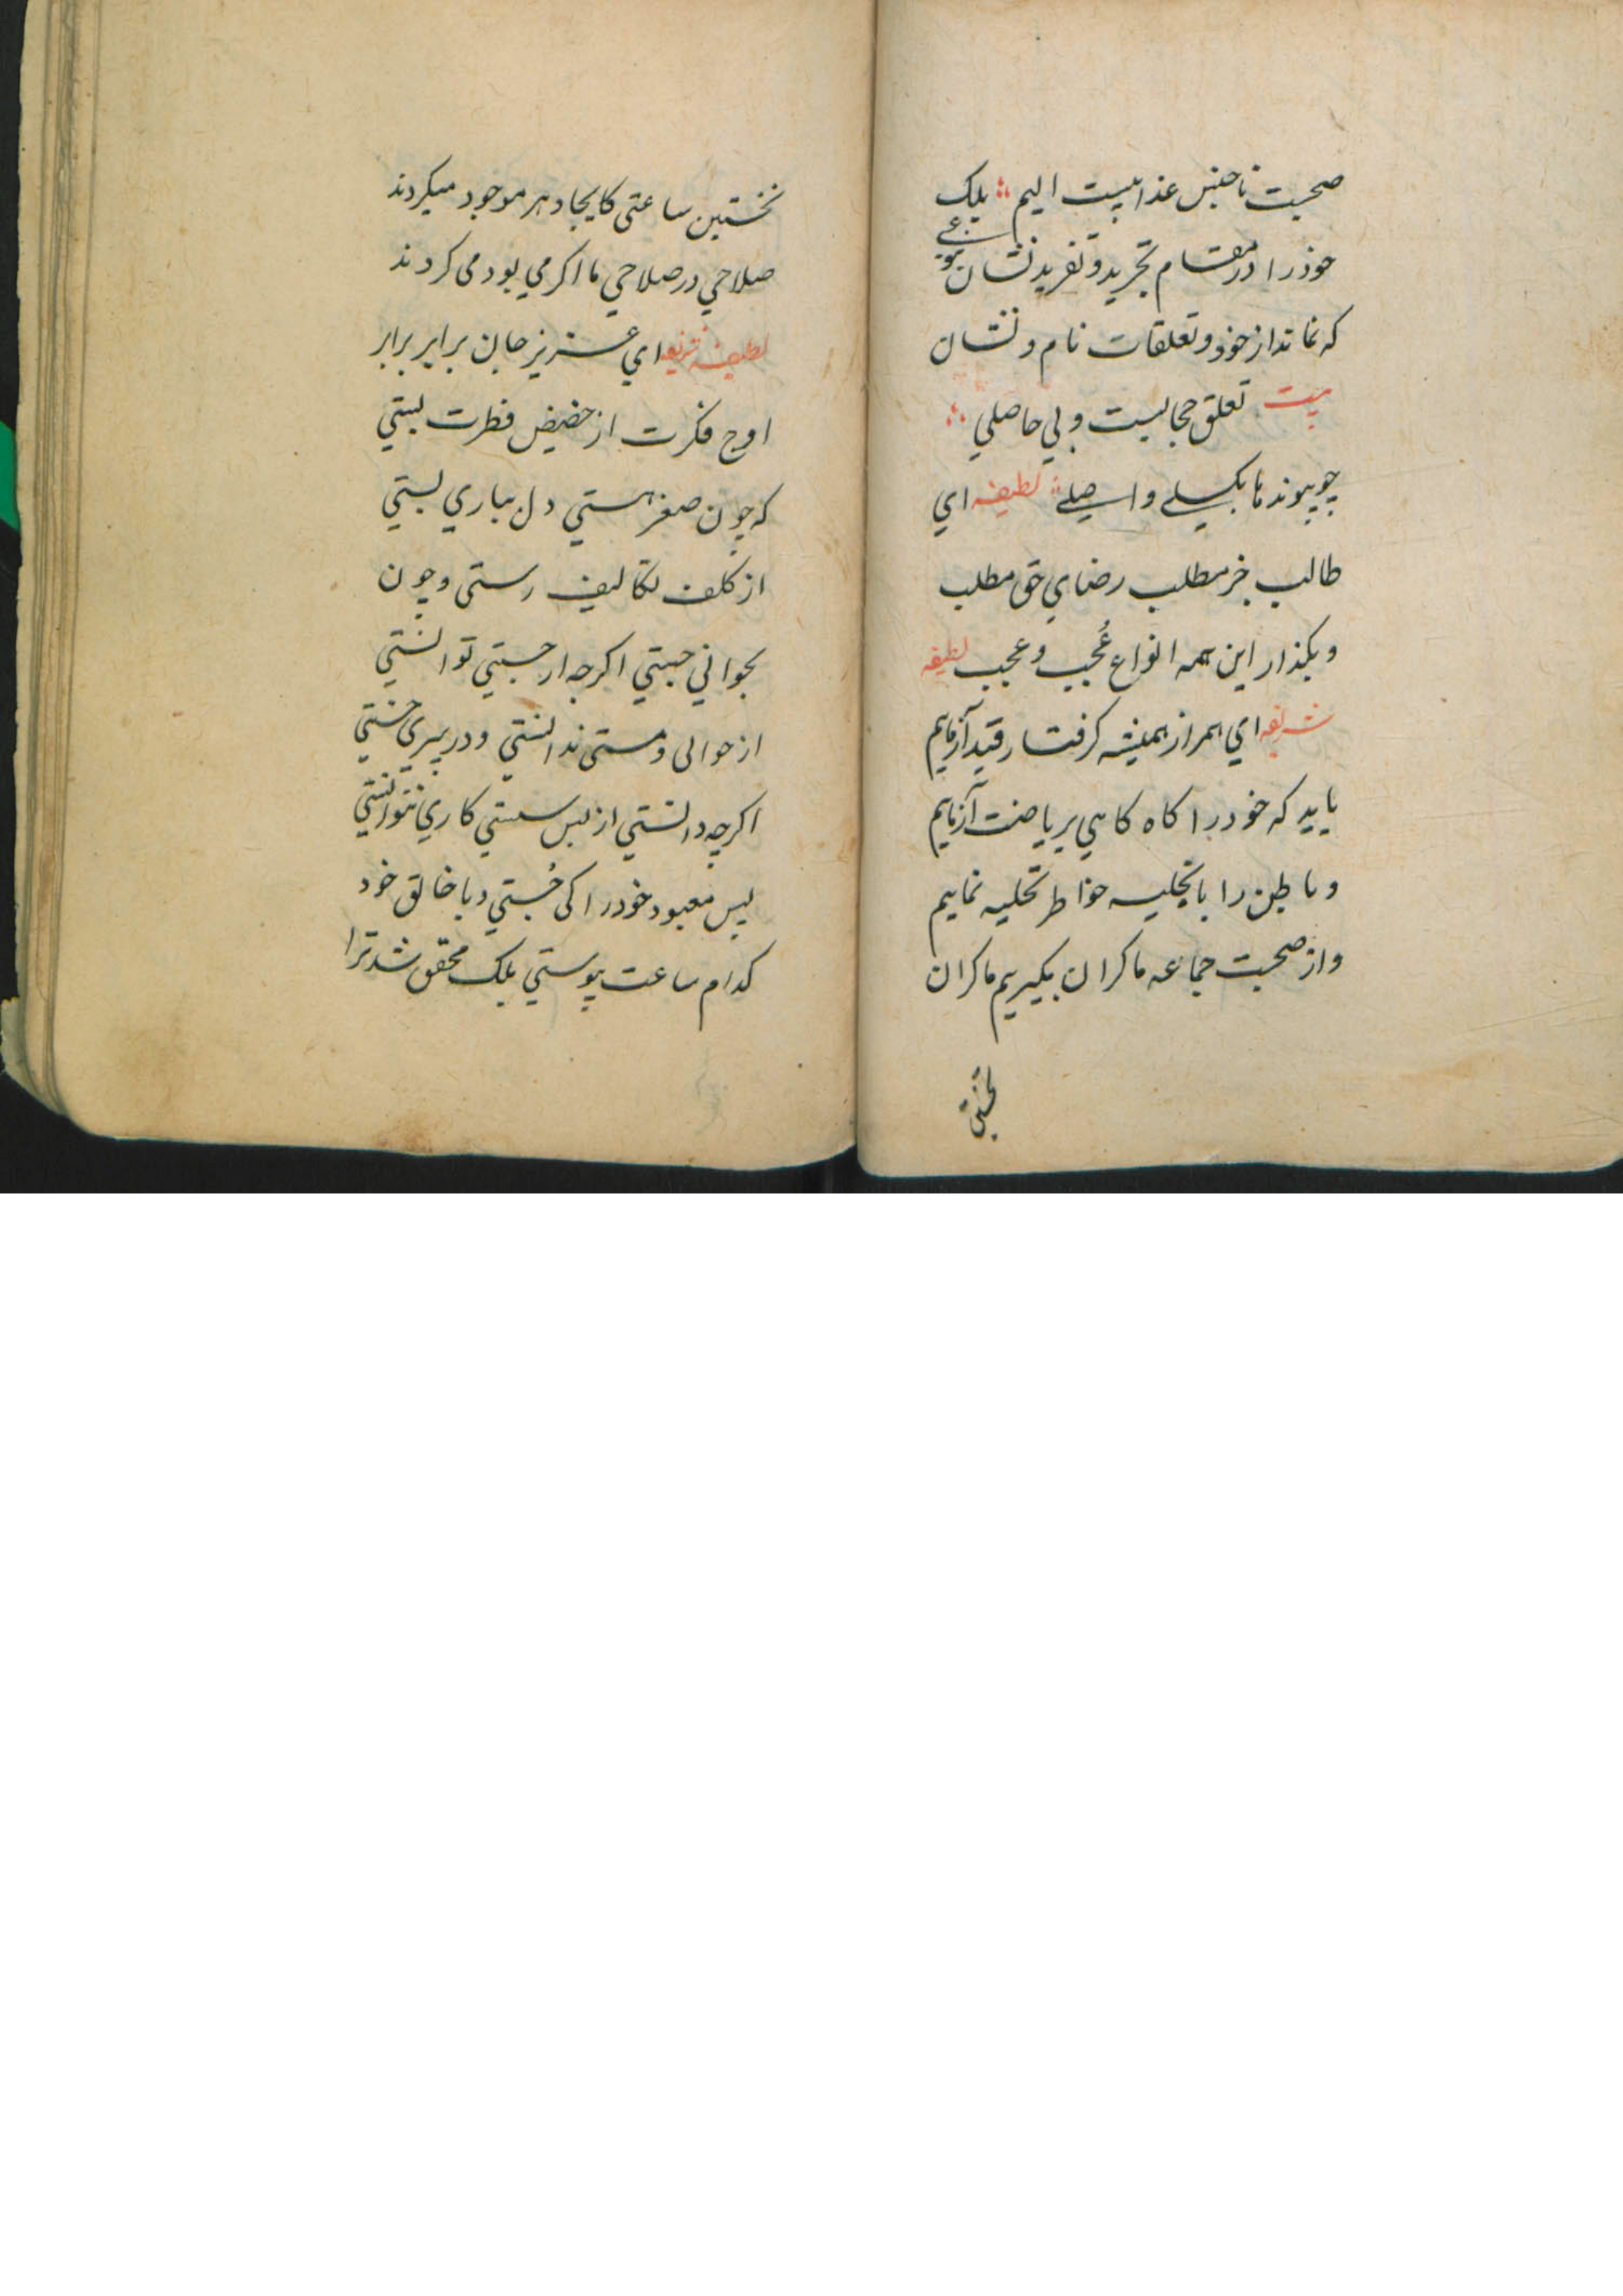 صحبت ناجنس عذابیست الیم ؞ بلک
خود را در مقام تجرید و تفرید نشان بنوعی
که نماند از خود و تعلقات نام و نشان
بیت تعلق حجابیست و بی حاصلی ؞
چو پیوندها بکسلے واصلے ؞ لطیفه ای
طالب جز مطلب رضای حق مطلب
و بکذار این همه انواع عُجب و عجب لطیفه
شریفه ای همراز همیشه کرفتار قید آز مایم
باید که خود را کاه کاهی بریاضت آزمایم
و باطن را با تخلیه خواطر تحلیه نماییم
و از صحبت جماعه ماکران بکیریم ماکران
نخستین
نخستین ساعتی کایجاد هر موجود میکردند
صلاحی در صلاحی ما اکر می بود می کردند
لطیفه شریفه ای عزیز جان برابر برابر
اوج فکرت از حضیض فطرت بستی
که چون صغر هستی دل بباری بستی
از کلف تکالیف رستی و چون
بجوانی جستی اکرچه ارجستی توانستی
از حوالی و مستی ندانستی و در پیری خستی
اکرچه دانستی از بس سستی کاری نتوانستی
پس معبود خود را کی جُستی و با خالق خود
کدام ساعت پیوستی بلک محقق شد ترا